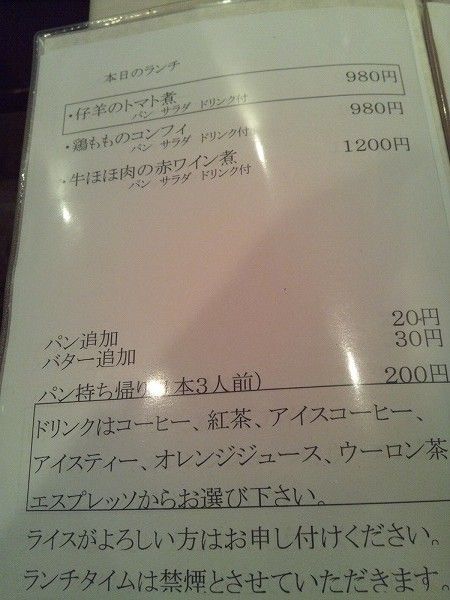 本日のランチ
・仔羊のトマト煮 980円
パン サラダ ドリンク付
・鶏もものコンフィ 980円
パン サラダ ドリンク付
・牛ほほ肉の赤ワイン煮 1200円
パン サラダ ドリンク付
パン追加 20円
バター追加 30円
パン持ち帰り 本3人前) 200円
ドリンクはコーヒー、紅茶、アイスコーヒー、
アイスティー、オレンジジュース、ウーロン茶
エスプレッソからお選び下さい。
ライスがよろしい方はお申し付けください。
ランチタイムは禁煙とさせていただきます。